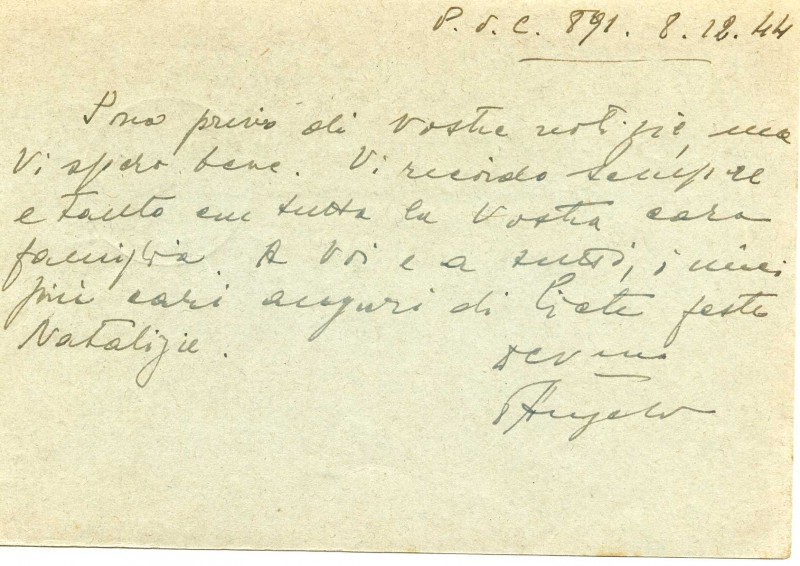 P.d.C. 891. 8.12.44
Sono privo di Vostre notizie, ma
Vi spero bene. Vi ricordo sempre
e tanto con tutta la Vostra cara
famiglia. A Voi e a tutti, i miei
più cari auguri di liete feste
Natalizie.
dev mo